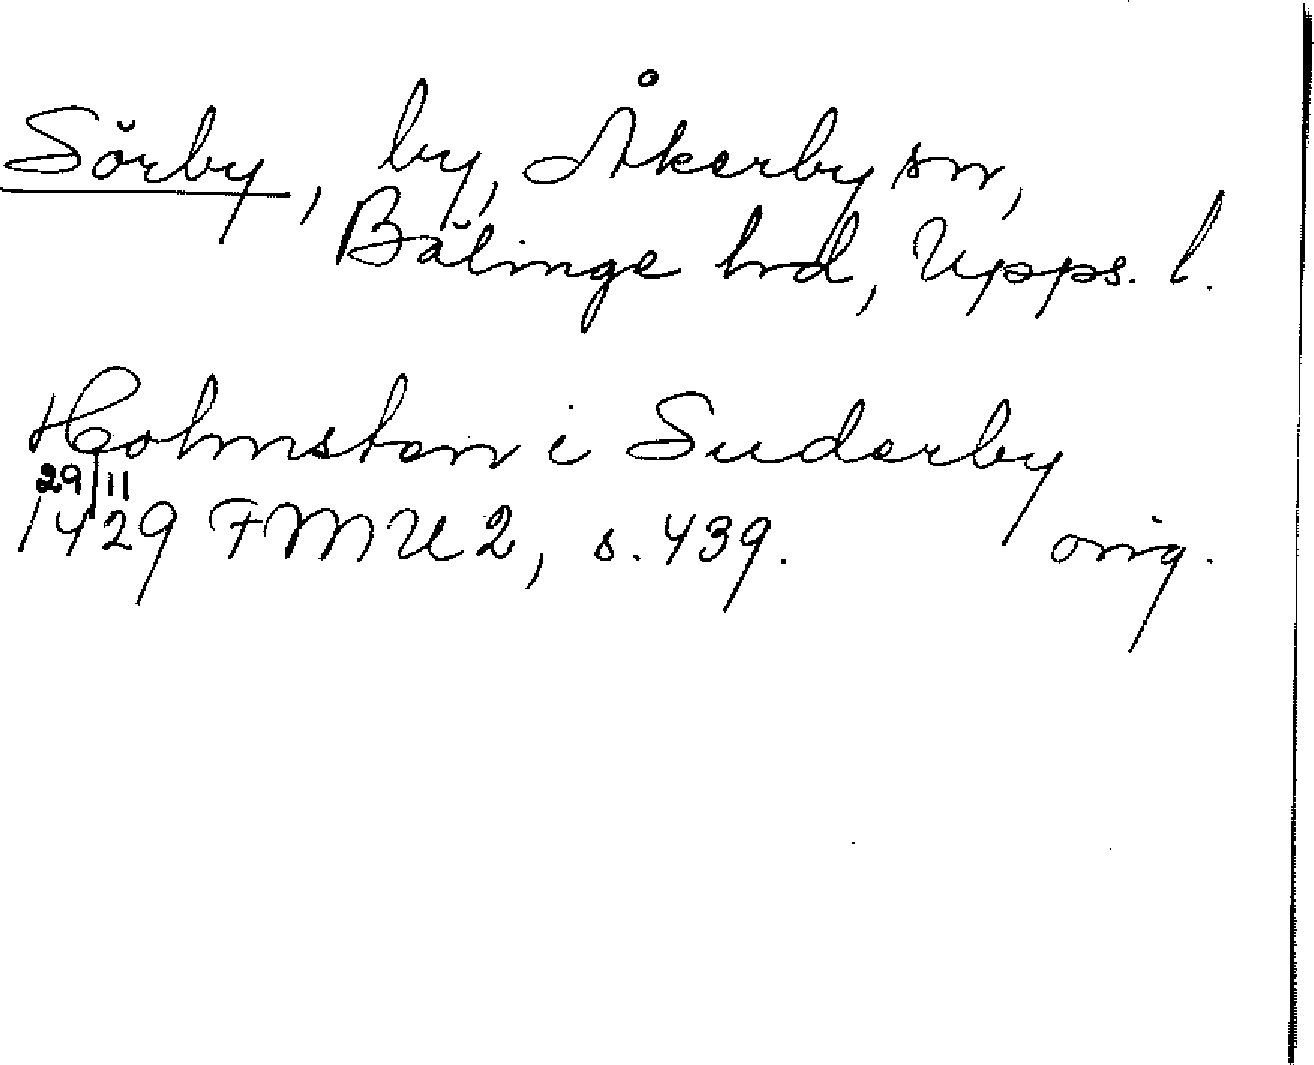 Sörby, by, Åkerby sn,
Bälinge hrd, Upps. l.
Holmsten i Suderby
29/11
1429 FMU 2, s. 439. orig.